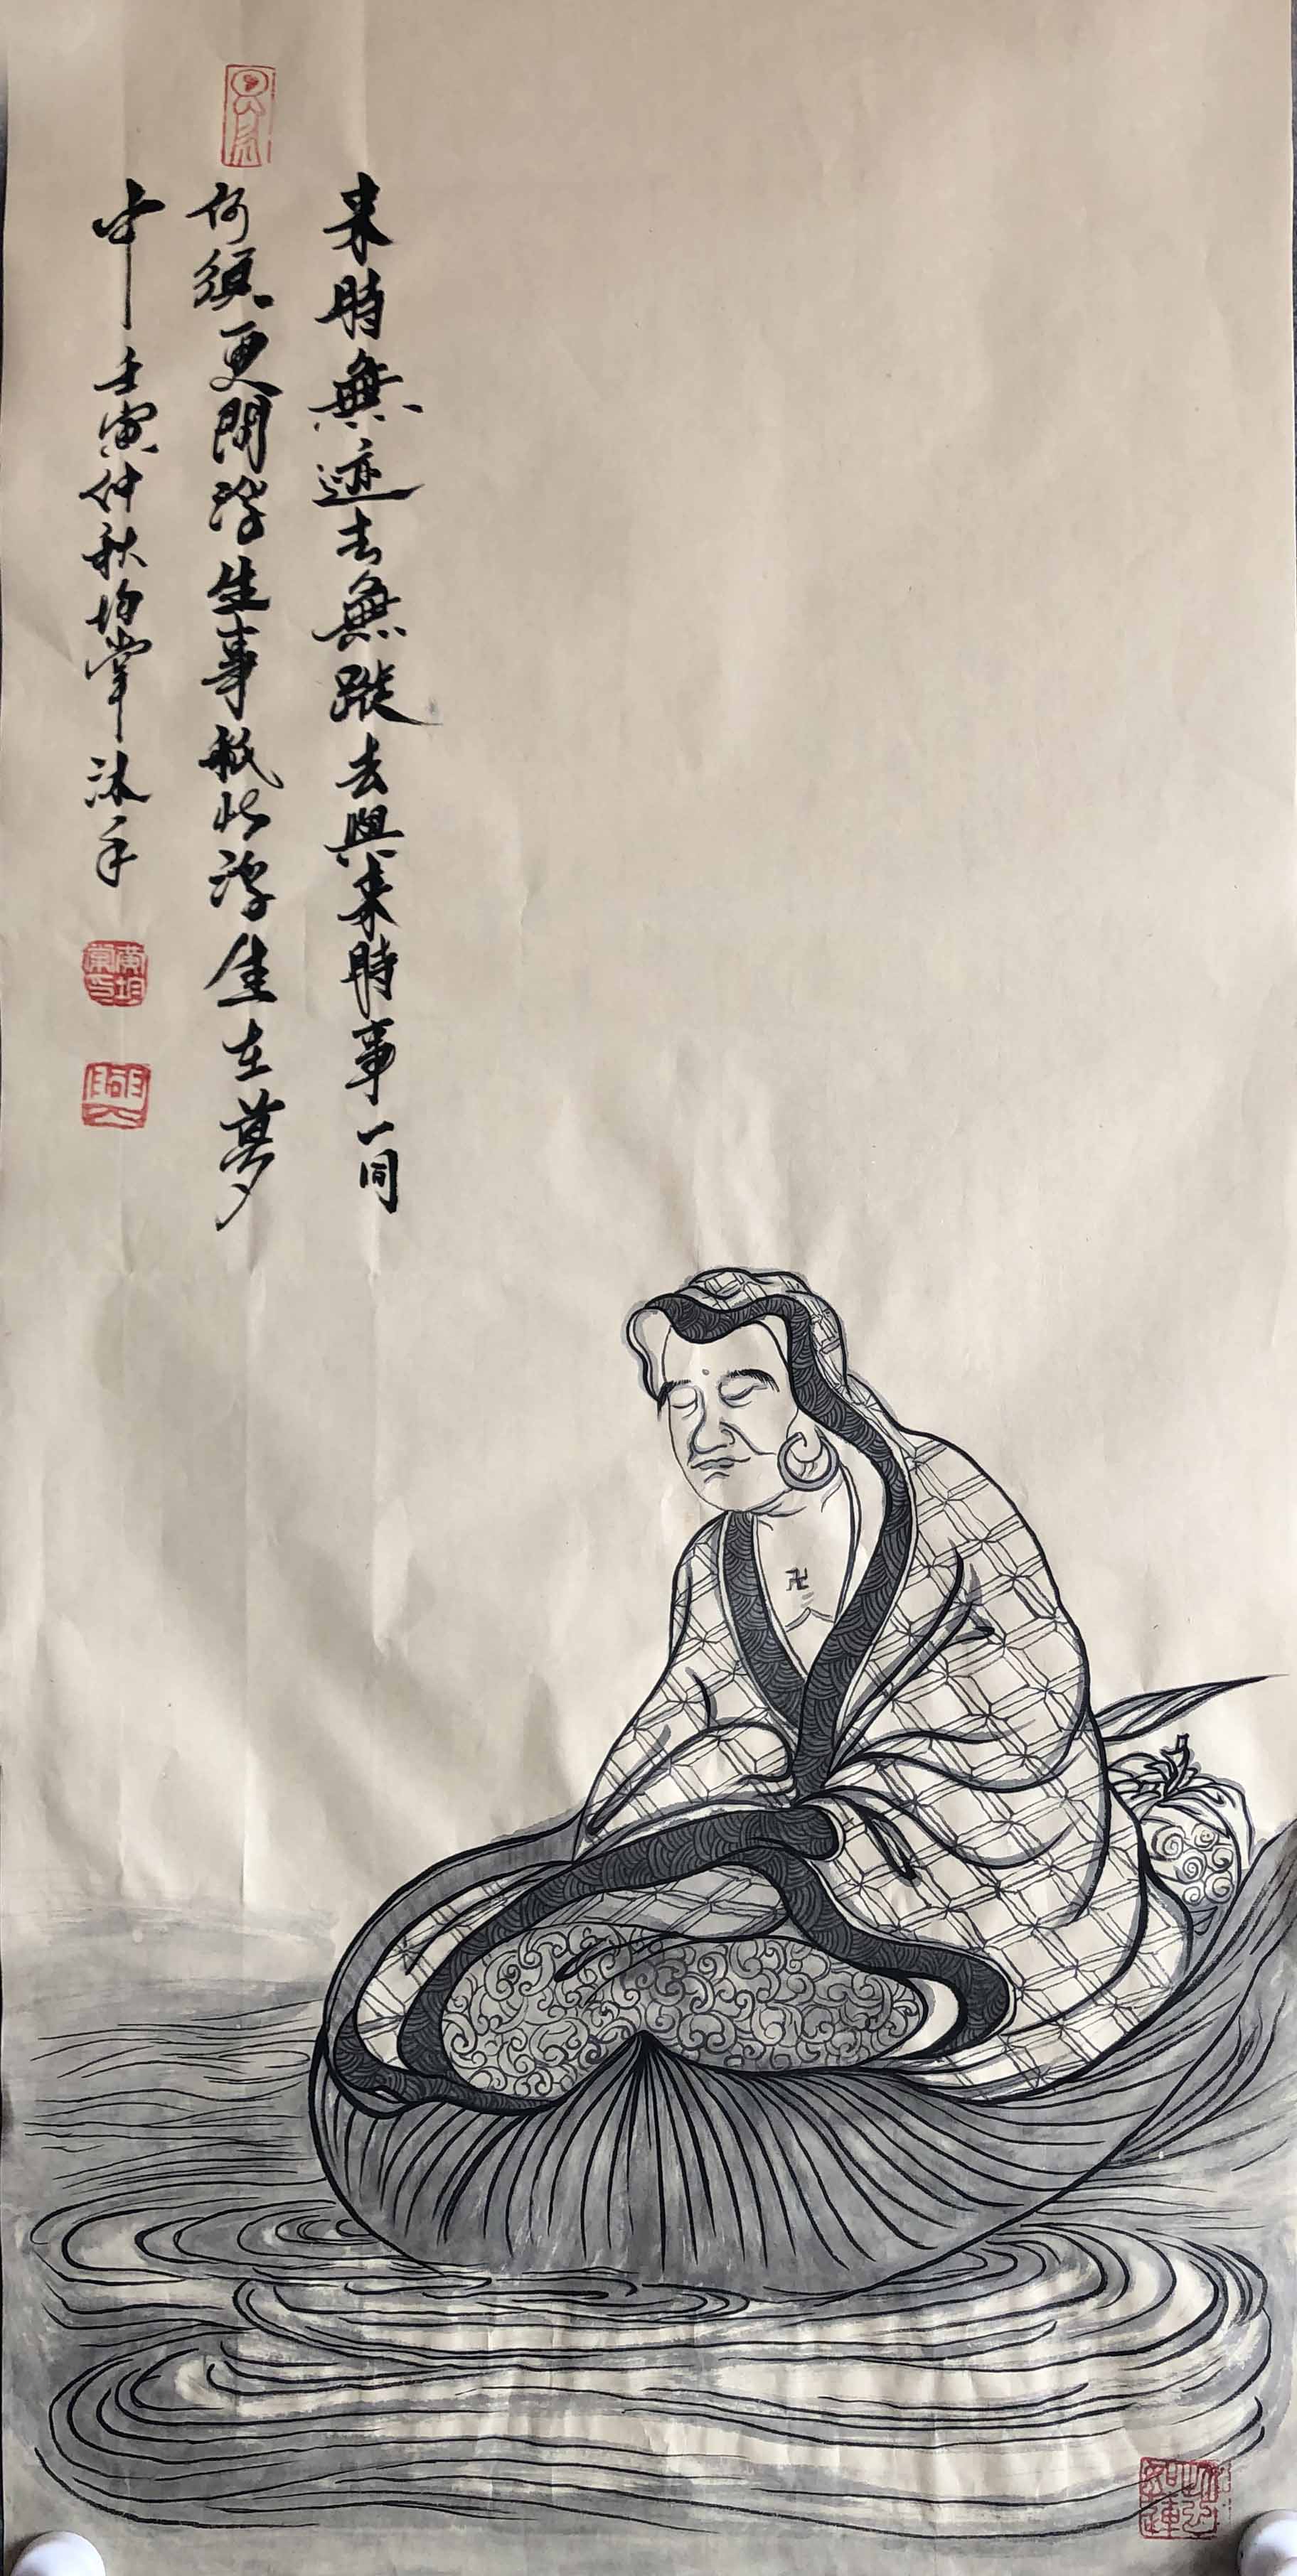 来時無迹去無蹤去與来時事一同
何須更問浮生事祇此浮生在夢
中 壬寅仲秋均棠沐手
卍